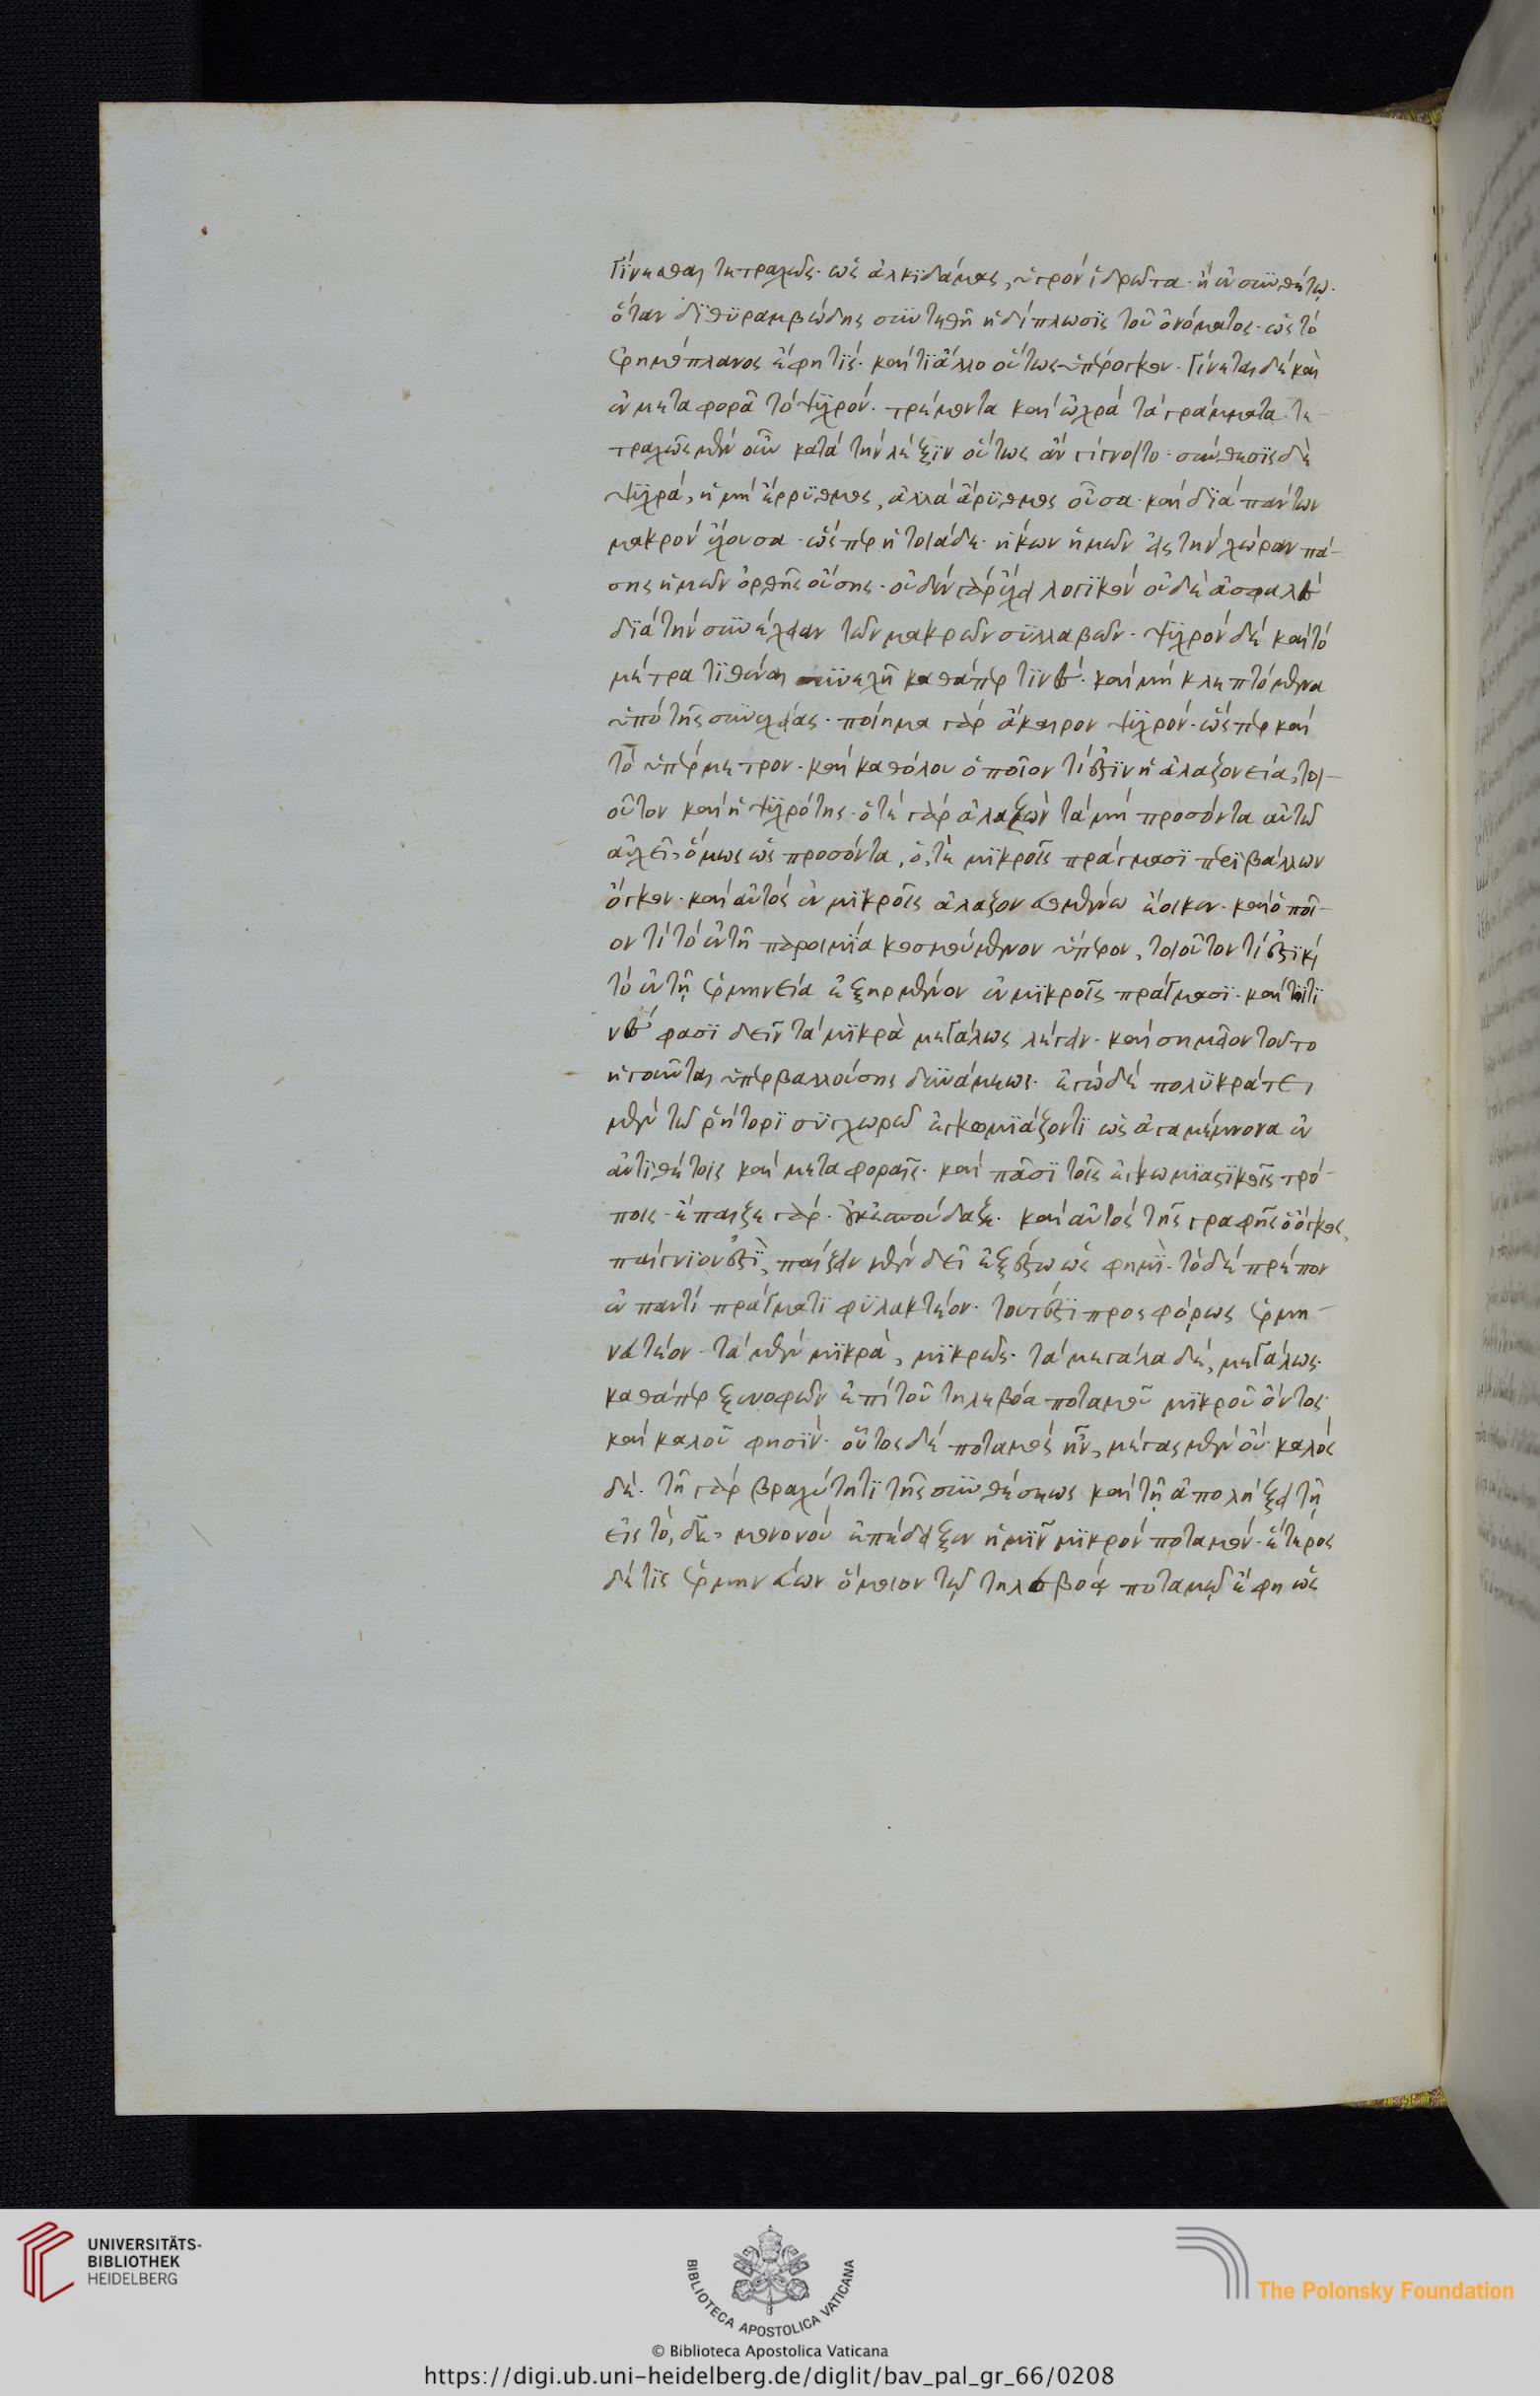 γίνεσθαι τετραχῶς· ὡς ἀλκιδάμας, ὑγρὸν ἱδρῶτα· ἢ ἐν συνθέτῳ·
ὅταν διθυραμβώδης συντεθῆ ἡ δίπλωσις τοῦ ὀνόματος· ὡς τὸ
ἐρημόπλανος ἔφη τίς· καὶ τὶ ἄλλο οὕτως ὑπέρογκον· Γίνεται δὲ καὶ
ἐν μεταφορᾶ τὸ ψυχρόν· τρέμοντα καὶ ὠχρὰ τὰ γράμματα· τε-
τραχῶς μὲν οὖν κατὰ τὴν λέξιν οὕτως ἂν γίγνοιτο· σύνθεσις δὲ
ψυχρά, ἡ μὴ ἔρρυθμος, ἀλλὰ ἄρυθμος οὖσα· καὶ διὰ πάντων
μακρὸν ἔχουσα· ὥσπερ ἡ τοιάδε· ἥκων ἡμῶν εἰς τὴν χώραν πά-
σης ἡμῶν ὀρθῆς οὔσης· οὐδὲν γὰρ ἔχει λογικὸν οὐδὲ ἀσφαλὲς
διὰ τὴν συνέχειαν τῶν μακρῶν συλλαβῶν· ψυχρὸν δὲ καὶ τὸ
μέτρα τιθέναι συνεχῆ καθάπερ τινές· καὶ μὴ κλεπτόμενα
ὑπὸ τῆς συνεχείας· ποίημα γὰρ ἄκαιρον ψυχρόν· ὥσπερ καὶ
τὸ ὑπέρμετρον· καὶ καθόλου ὁποῖον τί ἐστιν ἡ ἀλαζονεία, τοι-
οῦτον καὶ ἡ ψυχρότης· ὅ τε γὰρ ἀλαζὼν τὰ μὴ προσόντα αὐτῶ
αὐχεῖ ὅμως ὡς προσόντα, ὅ, τε μικροῖς πράγμασι περιβάλλων
ὄγκον· καὶ αὐτὸς ἐν μικροῖς ἀλαζονευομένω ἔοικεν· καὶ ὁποῖ-
ον τὶ τὸ ἐν τῆ παροιμία κοσμούμενον ὕπερον, τοιοῦτον τί ἐστι κὶ
τὸ ἐν τῆ ἑρμηνεία ἐξηρμένον ἐν μικροῖς πράγμασι· καί τοι τι
νές φασι δεῖν τὰ μικρὰ μεγάλως λέγειν· καὶ σημεῖον τοῦτο
ἡγοῦνται ὑπερβαλλούσης δυνάμεως· ἐγὼ δὲ πολυκράτει
μὲν τῶ ῥήτορι συγχωρῶ ἐγκωμιάζοντι ὡς ἀγαμέμνονα ἐν
ἀντιθέτοις καὶ μεταφοραῖς· καὶ πᾶσι τοῖς ἐγκωμιαστικοῖς τρό-
ποις· ἔπαιζε γὰρ· οὐκ ἐσπούδαζε· καὶ αὐτὸς τῆς γραφῆς ὁ ὄγκος,
παίγνιον ἐστὶ, παίζειν μὲν δεῖ ἐξέστω ὡς φημὶ· τὸ δὲ πρέπον
ἐν παντὶ πράγματι φυλακτέον· τουτέστι προσφόρως ἑρμη-
νευτέον· τὰ μὲν μικρὰ, μικρῶς· τὰ μεγάλα δὲ, μεγάλως·
καθάπερ ξενοφῶν ἐπὶ τοῦ τηλεβόα ποταμοῦ μικροῦ ὄντος
καὶ καλοῦ φησίν· οὗτος δὲ ποταμὸς ἦν, μέγας μὲν οὔ· καλὸς
δέ· τῆ γὰρ βραχύτητι τῆς συνθέσεως καὶ τῇ ἀπολήξει τῇ
εἰς τὸ, δὲ, μονονοὺ ἐπέδειξεν ἡμῖν μικρὸν ποταμόν· ἕτερος
δέ τις ἑρμηνεύων ὅμοιον τῷ τηλεβοᾳ ποταμῷ ἔφη ὡς
UNIVERSITÄTS-
BIBLIOTHEK
HEIDELBERG
BIBLIOTECA APOSTOLICA VATICANA
The Polonsky Foundation
© Biblioteca Apostolica Vaticana
https://digi.ub.uni-heidelberg.de/diglit/bav_pal_gr_66/0208